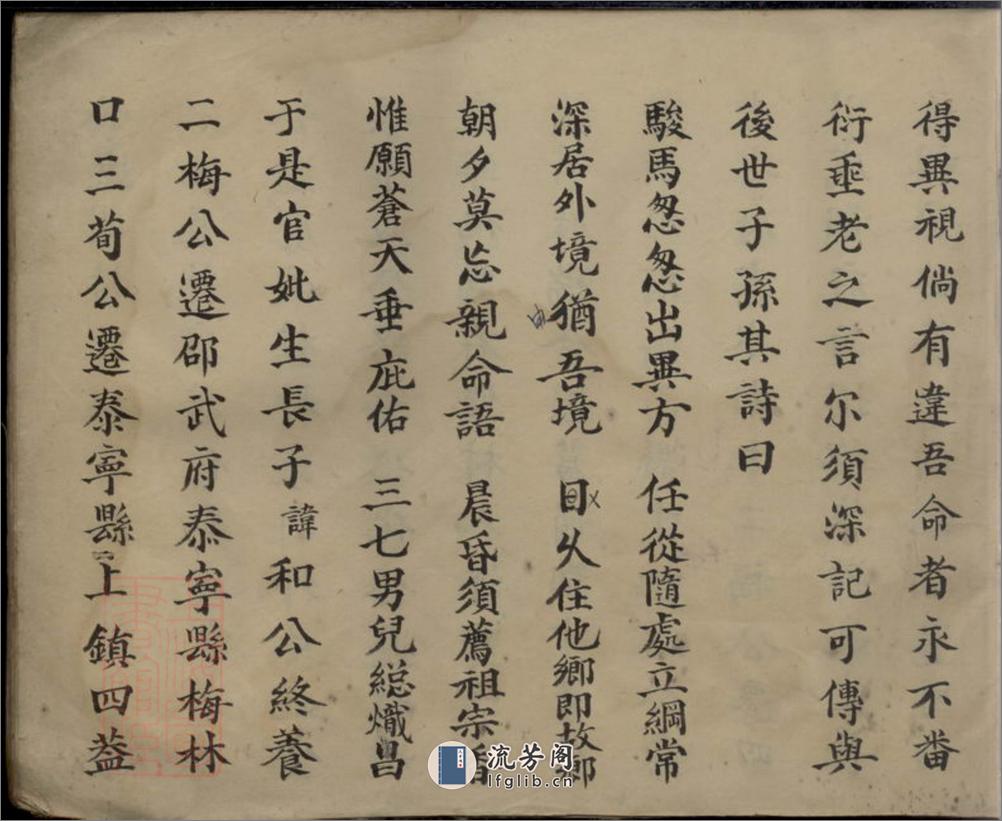 得異視倘有違吾命者永不番
衍垂老之言尔須深記可傳與
後世子孫其詩曰
駿馬怱怱出異方　任從隨處立綱常
深居外境猶吾境　目乆住他鄉即故鄉
朝夕莫忘親命語　晨昏須薦祖宗香
惟願蒼天垂庇佑　三七男兒総熾昌
于是官妣生長子諱和公終養
二梅公遷邵武府泰寧縣梅林
口三荀公遷泰寧縣上鎮四益
流芳阁
lfglib.cn